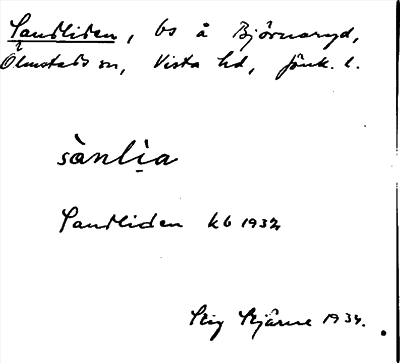 Sandliden, bs å Björnaryd,
Ölmstads sn, Vista hd, Jönk. l.
sànlìa
Sandliden kb 1932
Stig Stjärne 1934.